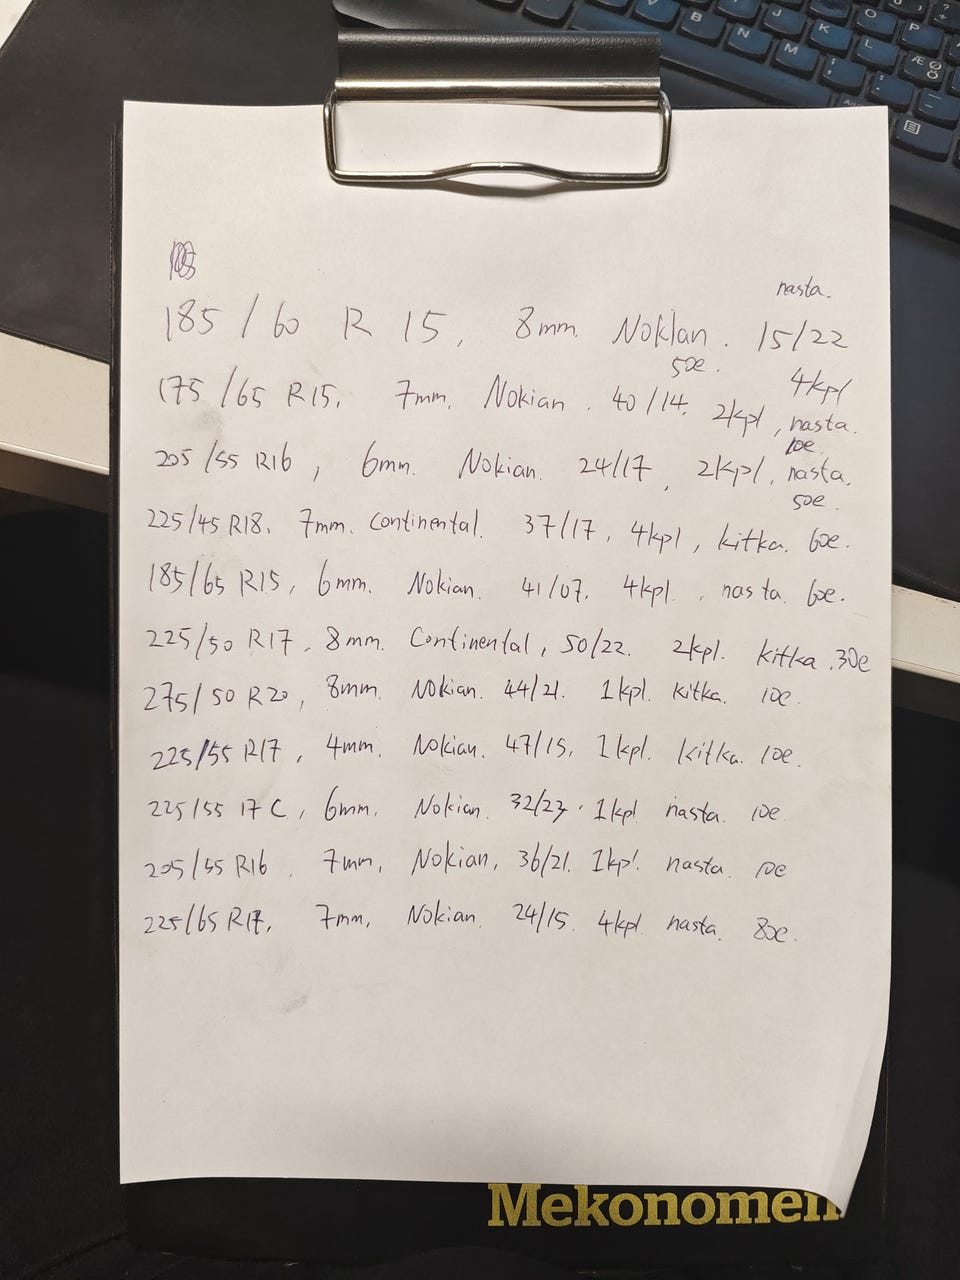 nasta.
185/60 R 15, 8mm. Nokian. 15/22
50e. 4kpl
175/65 R15. 7mm. Nokian. 40/14. 2kpl, nasta.
10e.
205/55 R16, 6mm. Nokian. 24/17, 2kpl, nasta.
50e.
225/45 R18. 7mm. Continental. 37/17, 4kpl, kitka. 60e.
185/65 R15, 6mm. Nokian. 41/07. 4kpl., nasta. 60e.
225/50 R17, 8mm. Continental, 50/22. 2kpl. kitka. 30e
275/50 R20, 8mm. Nokian. 44/21. 1kpl. kitka. 10e.
225/55 R17, 4mm. Nokian. 47/15, 1kpl. kitka. 10e.
225/55 17 C, 6mm. Nokian. 32/23. 1kpl nasta. 10e
205/55 R16. 7mm, Nokian, 36/21. 1kpl. nasta. 10e
225/65 R17. 7mm, Nokian. 24/15. 4kpl nasta. 80e.
Mekonomen